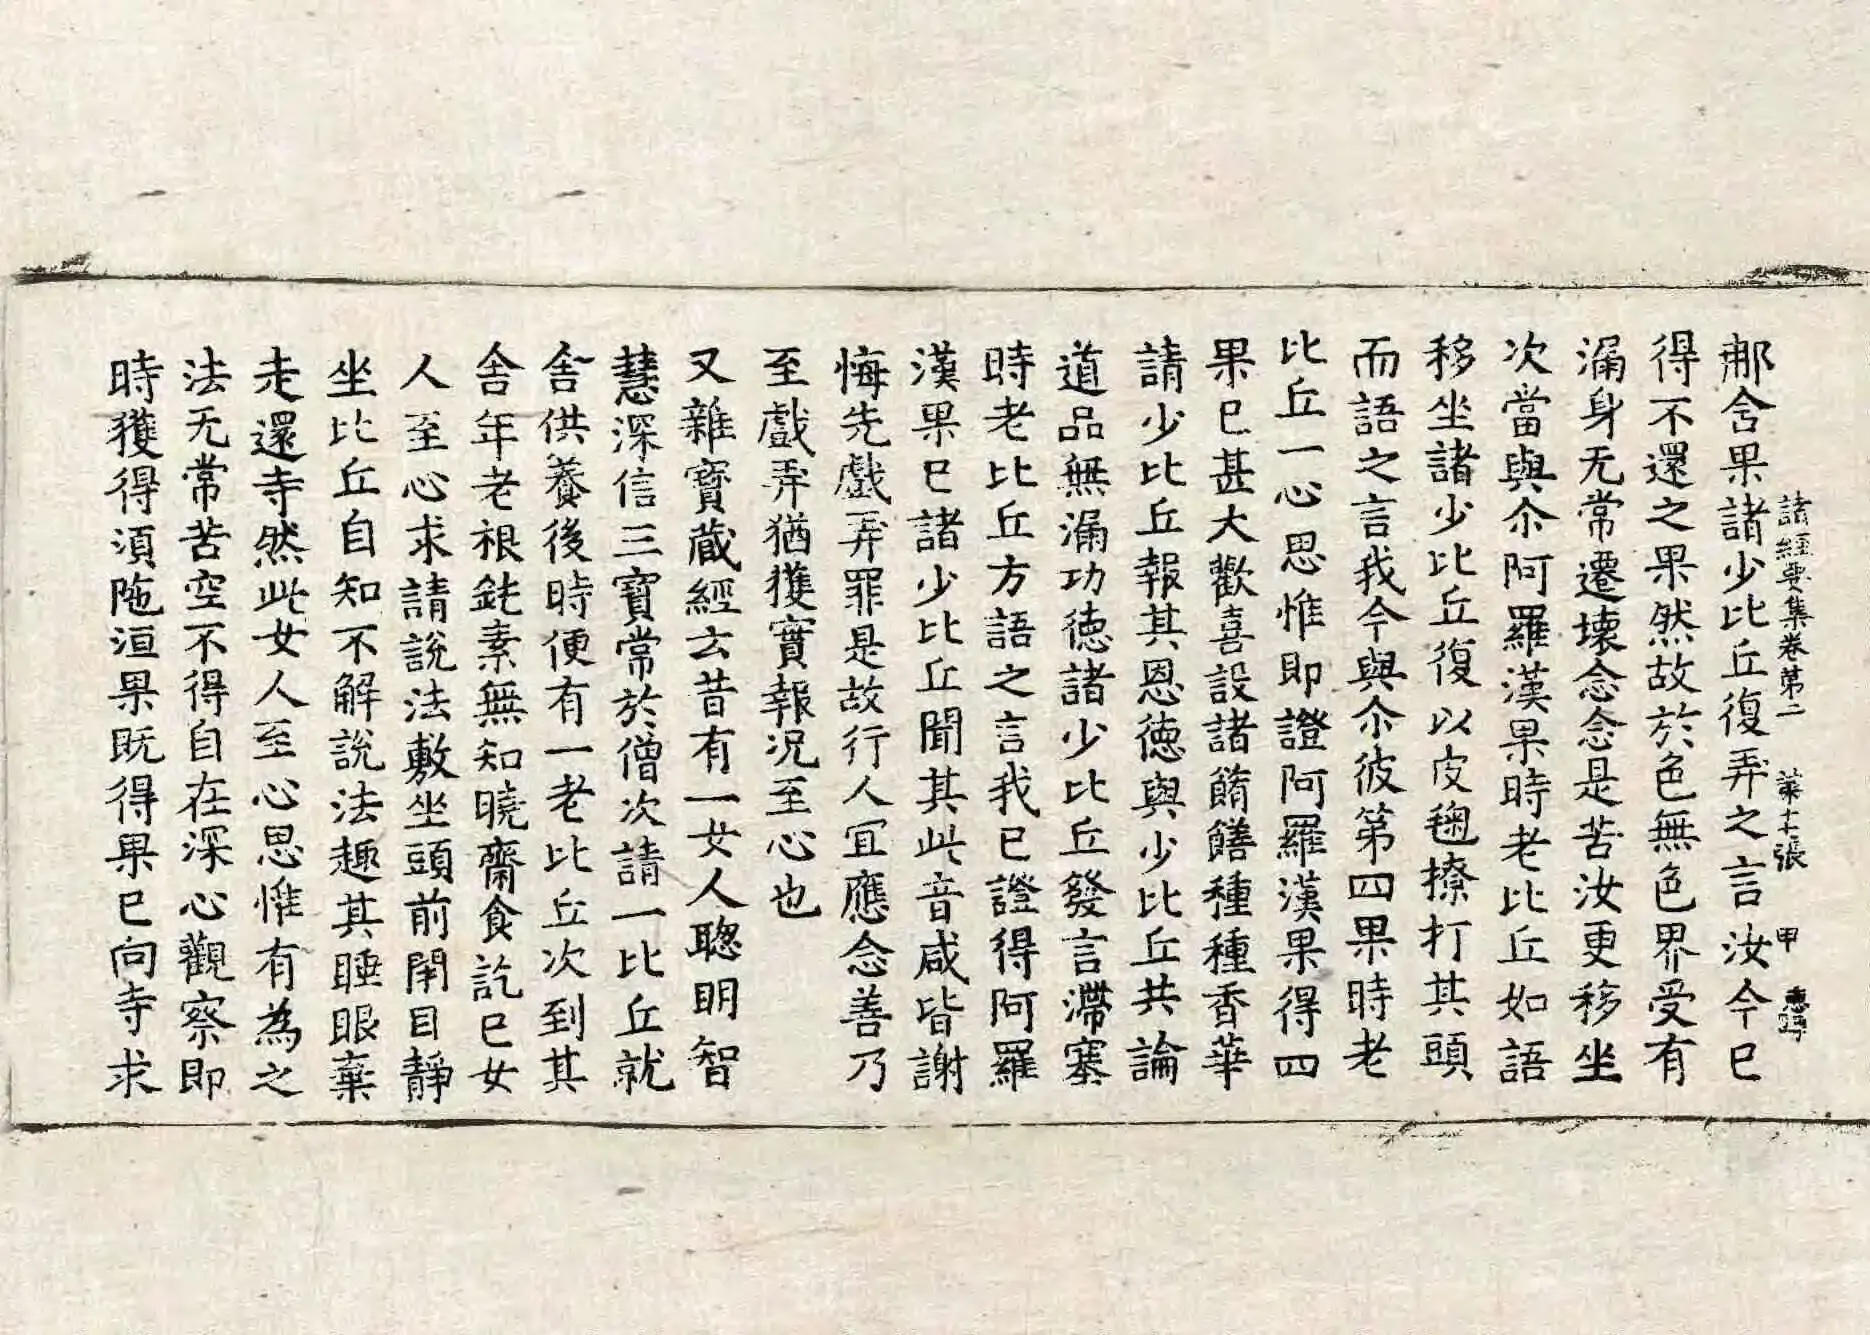 諸經要集卷第二 第十七張 甲
郍舍果諸少比丘復弄之言汝今已
得不還之果然故於色無色界受有
漏身无常遷壞念念是苦汝更移坐
次當與尒阿羅漢果時老比丘如語
移坐諸少比丘復以皮毱撩打其頭
而語之言我今與尒彼第四果時老
比丘一心思惟即證阿羅漢果得四
果已甚大歡喜設諸餚饍種種香華
請少比丘報其恩德與少比丘共論
道品無漏功德諸少比丘發言滯塞
時老比丘方語之言我已證得阿羅
漢果已諸少比丘聞其此音咸皆謝
悔先戲弄罪是故行人冝應念善乃
至戲弄猶獲實報况至心也
又雜寶蔵經云昔有一女人聦明智
慧深信三寶常於僧次請一比丘就
舍供養後時便有一老比丘次到其
舍年老根鈍素無知曉齋食訖已女
人至心求請說法敷坐頭前閇目靜
坐比丘自知不解說法趣其睡眼棄
走還寺然此女人至心思惟有為之
法无常苦空不得自在深心觀察即
時獲得湏陁洹果既得果已向寺求